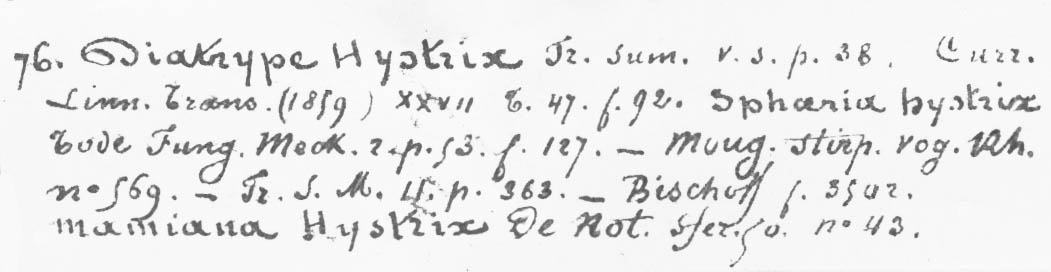 76. Diatrype Hystrix Fr. Sum. v. s. p. 38. Curr.
Linn. Trans. (1859) XXVII t. 47. f. 92. Sphaeria hystrix
Tode Fung. Meck. 2. p. 53. f. 127. — Moug. stirp. vog. Rh.
n° 569. — Fr. S. M. II. p. 363. — Bischoff f. 3502.
mamiana Hystrix De Not. Sfer. n° 43.